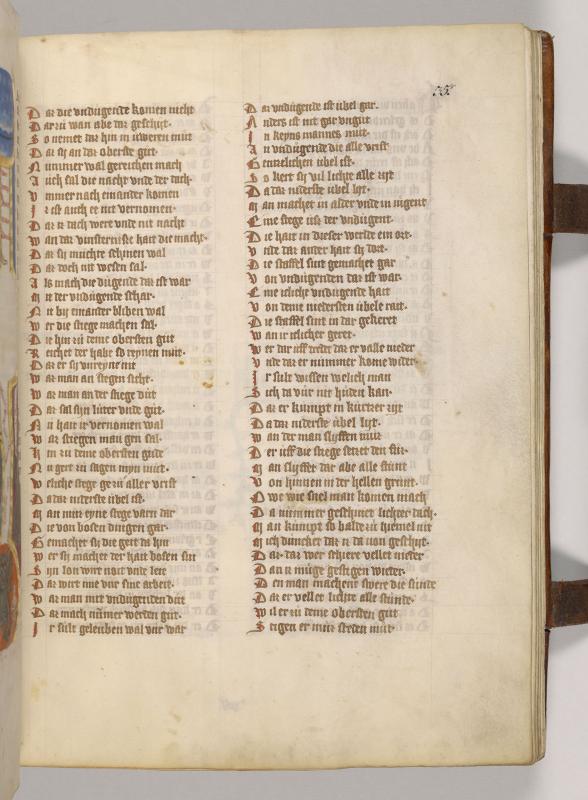 Dar die vndugende komen nicht
Dar zu wan abe daz geschiht
So nemet daz hin in uweren mut
Daz sy an daz oberste gut
Nummer wal gereichen mach
Auch sal die nacht vnde der dach
Vmmer nach einander komen
Ir ist auch er nit vernomen
Daz iz dach were vnde nit nacht
Wan daz vinsternisse hait die macht
Daz sy muchte schinen wal
Daz doch nit wesen sal
Als mach die dugende daz ist war
Mit der vndugende schar
Nit by einander bliben wal
Wer die stiege machen sal
Die hin zu deme obersten gut
Reichet der habe so reynen mut
Daz er sy vnreyne nit
War man an stegen siht
War man an der stiege dut
Daz sal sin luter vnde gut
Nu hait ir vernomen wal
War stiegen man gen sal
Hin zu deme obersten gude
Nu gert zu sagen myn mut
Weliche stiege ge zu aller vrist
Da daz niderste ubel ist
Man mit eyne stege varn dar
Die von bosen dingen gar
Gemachet sy die geit da hin
Wer sy machet der hait bosen sin
Syn lon wirt noit vnde leit
Daz wirt ime vur sine arbeit
War man mit vndugenden dut
Daz mach nummer werden gut
Ir sult geleuben wal vur war
Daz vndugende ist ubel gar
Anders ist nit gar vngut
In keyns mannes mut
An vndugende die alle vrist
Genzelichen ubel ist
So kert sy vil lichte alle zyt
Da daz niderste ubel lyt
Man machet in alder vnde in iugent
Eine stege uzz der vndugent
Die hait in dieser werlde ein ort
Vnde daz ander hait sy dort
Die staffel sint gemachet gar
Von vndugenden daz ist war
Eine icliche vndugende hait
Von deme niedersten ubele rait
Die staffel sint in dar gekeret
Wan ir iclicher geret
Wer dar uff tredet daz er valle nieder
Vnde daz er nummer kome wider
Ir sult wissen welich man
Sich da vur nit huden kan
Daz er kumpt in kurtzer zyt
Da daz niderste ubel lyt
Wan der man slyffen muz
Der uff die stiege setzet den fuz
Man slyffet dar abe alle stunt
Von hinnen in der hellen grunt
Nwe wie snel man komen mach
Da nummer geschinet lichter dach
Man kumpt so balde zu hiemel nit
Mich duncket daz iz da von geschiht
Daz daz wer schiere vellet nieder
Dan iz muge gestigen wieder
Den man machent swere die sunde
Daz er vellet lichte alle stunde
Wil er zu deme obersten gut
Stigen er muz steden mut